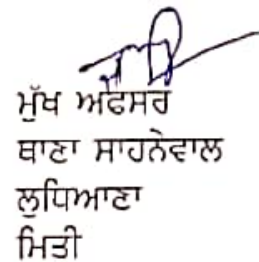 ਮੁੱਖ ਅਫਸਰ
ਥਾਣਾ ਸਾਹਨੇਵਾਲ
ਲੁਧਿਆਣਾ
ਮਿਤੀ